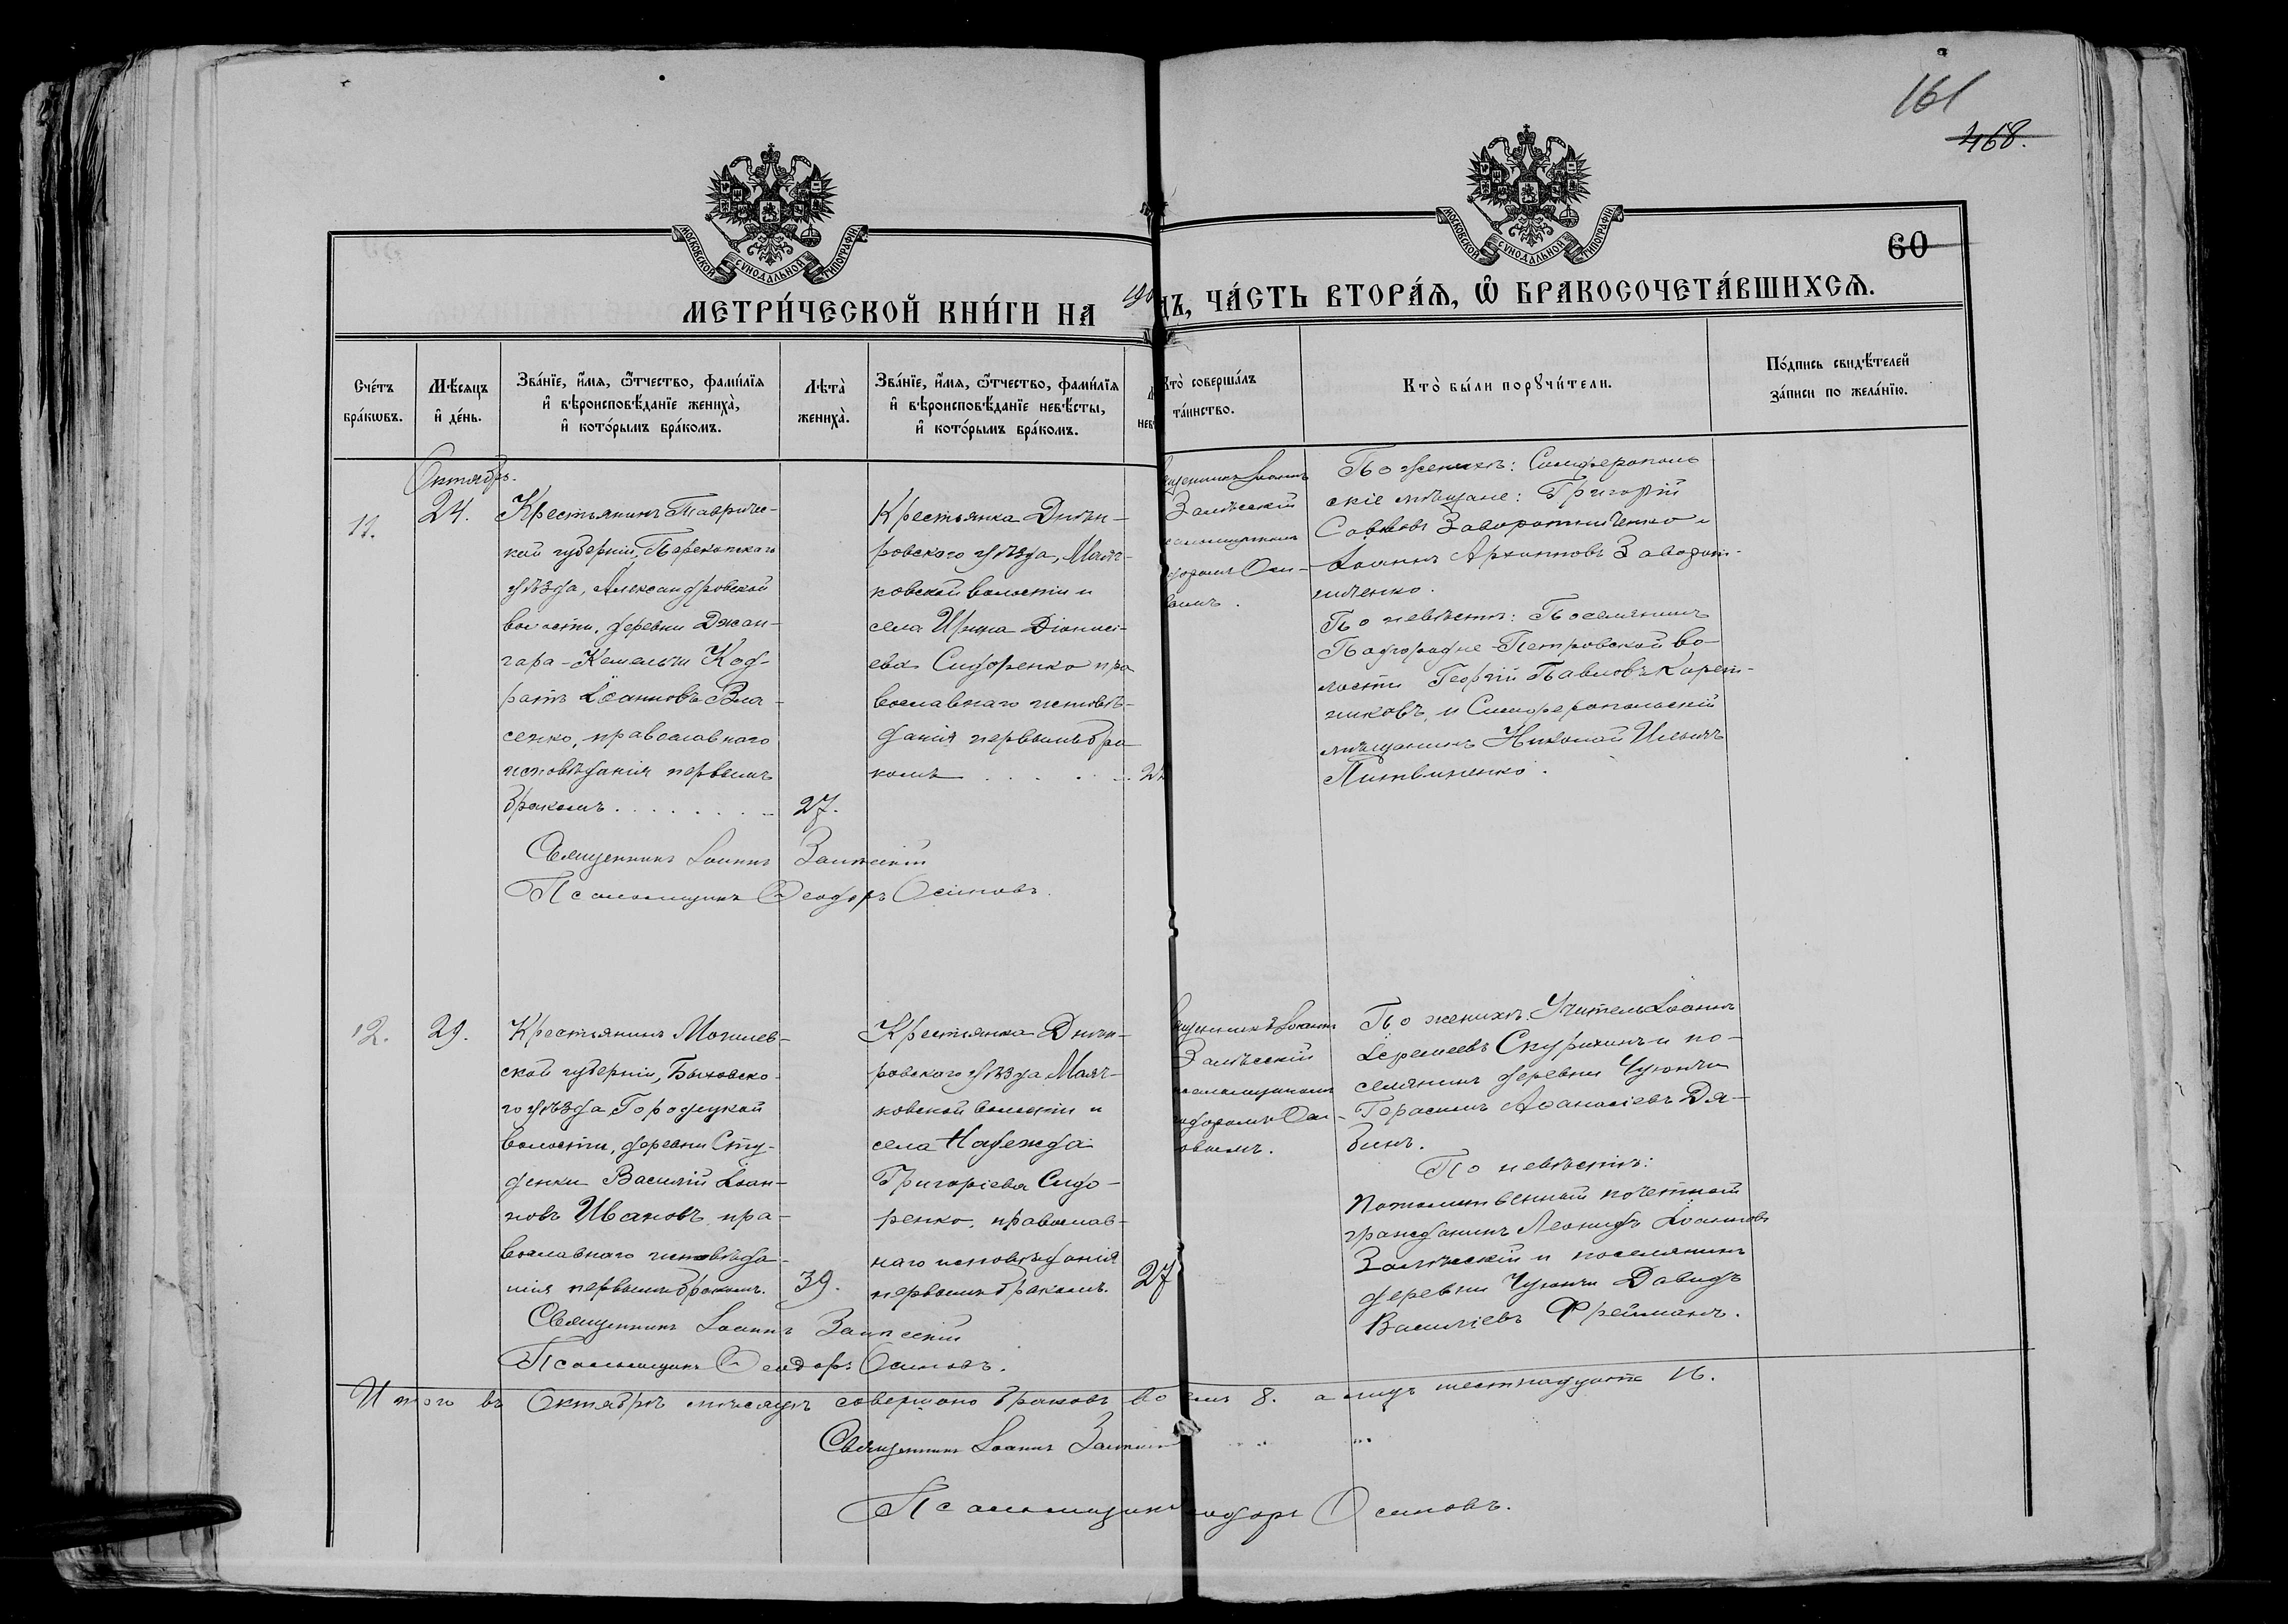 161
468.
МОСКОВСКОЙ СѴНОДАЛЬНОЙ ТИПОГРАФІИ
МОСКОВСКОЙ СѴНОДАЛЬНОЙ ТИПОГРАФІИ
60
МЕТРИ́ЧЕСКОЙ КНИ́ГИ НА
ДЪ, ЧА́СТЬ ВТОРА́Я, Ѽ БРАКОСОЧЕТА́ВШИХСЯ.
Сче́тъ
бра́кωвъ.
Мѣ́сяцъ
и҆ де́нь.
Зва́нїе, и҆́мя, ѻ҆́тчество, фамї́лїя
и҆ вѣроисповѣ́данїе жениха̀,
и҆ кото́рымъ бра́комъ.
Лѣта̀
жениха̀.
Зва́нїе, и҆́мя, ѻ҆́тчество, фамї́лїя
и҆ вѣроисповѣ́данїе невѣ́сты,
и҆ кото́рымъ бра́комъ.
Кто̀ соверша́лъ
та́инство.
Кто̀ бы́ли порꙋчи́тели.
По́дпись свидѣ́телей
за́писи по жела́нїю.
Октябрь.
11.
24.
Крестьянинъ Тавричес-
кой губерніи, Перекопскаго
уѣзда, Александровской
волости, деревни Джан-
гара-Кемельчи Код-
ратъ Іоанновъ Вла-
сенко, православнаго
исповѣданія первымъ
бракомъ . . . . . . . .
27.
Крестьянка Днѣп-
ровскаго уѣзда, Маяч-
ковской волости и
села Ирина Діонисі-
ева Сидоренко пра
вославнаго исповѣ-
данія первымъ бра
комъ . . . . .
2
щенникъ Іоаннъ
Залѣсскій
псаломщикомъ
одоромъ Оси-
вымъ.
По женихѣ: Симферополь
скіе мѣщане: Григорій
Саввовъ Заворотниченко и
Іоаннъ Архиповъ Заворот-
ниченко.
По невѣстѣ: Поселянинъ
Подгородне-Петровской во-
лости Георгій Павловъ Карет-
никовъ, и Симферопольскій
мѣщанинъ Николай Ильичъ
Литвиненко.
Священникъ Іоаннъ Залѣсскій
Псаломщикъ Ѳеодоръ Осиповъ.
12.
29.
Крестьянинъ Могилев-
ской губерніи, Быховска-
го уѣзда Городецкой
волости, деревни Сту-
денки Василій Іоан-
новъ Ивановъ, пра-
вославнаго исповѣда-
нія первымъ бракомъ.
39.
Крестьянка Днѣп-
ровскаго уѣзда Маяч-
ковской волости и
села Надежда
Григоріева Сидо-
ренко, православ-
наго исповѣданія
первымъ бракомъ.
27
щенникъ Іоаннъ
Залѣсскій
псаломщикомъ
одоромъ Оси-
овымъ.
По женихѣ: Учитель Іоаннъ
Іеремеевъ Скурихинъ и по-
селянинъ деревни Чуюнчи
Герасимъ Аѳанасіевъ Дя-
бинъ.
По невѣстѣ:
Потомственный почетный
гражданинъ Леонидъ Іоанновъ
Залѣсскій и поселянинъ
деревни Чуюнчи Давидъ
Василіевъ Фрейманъ.
Священникъ Іоаннъ Залѣсскій
Псаломщикъ Ѳеодоръ Осиповъ.
Итого въ Октябрѣ мѣсяцѣ совершено браковъ во емь 8. а лицъ шестнадцать 16.
Священникъ Іоаннъ Залѣсскій
Псаломщикъ одоръ Осиповъ.